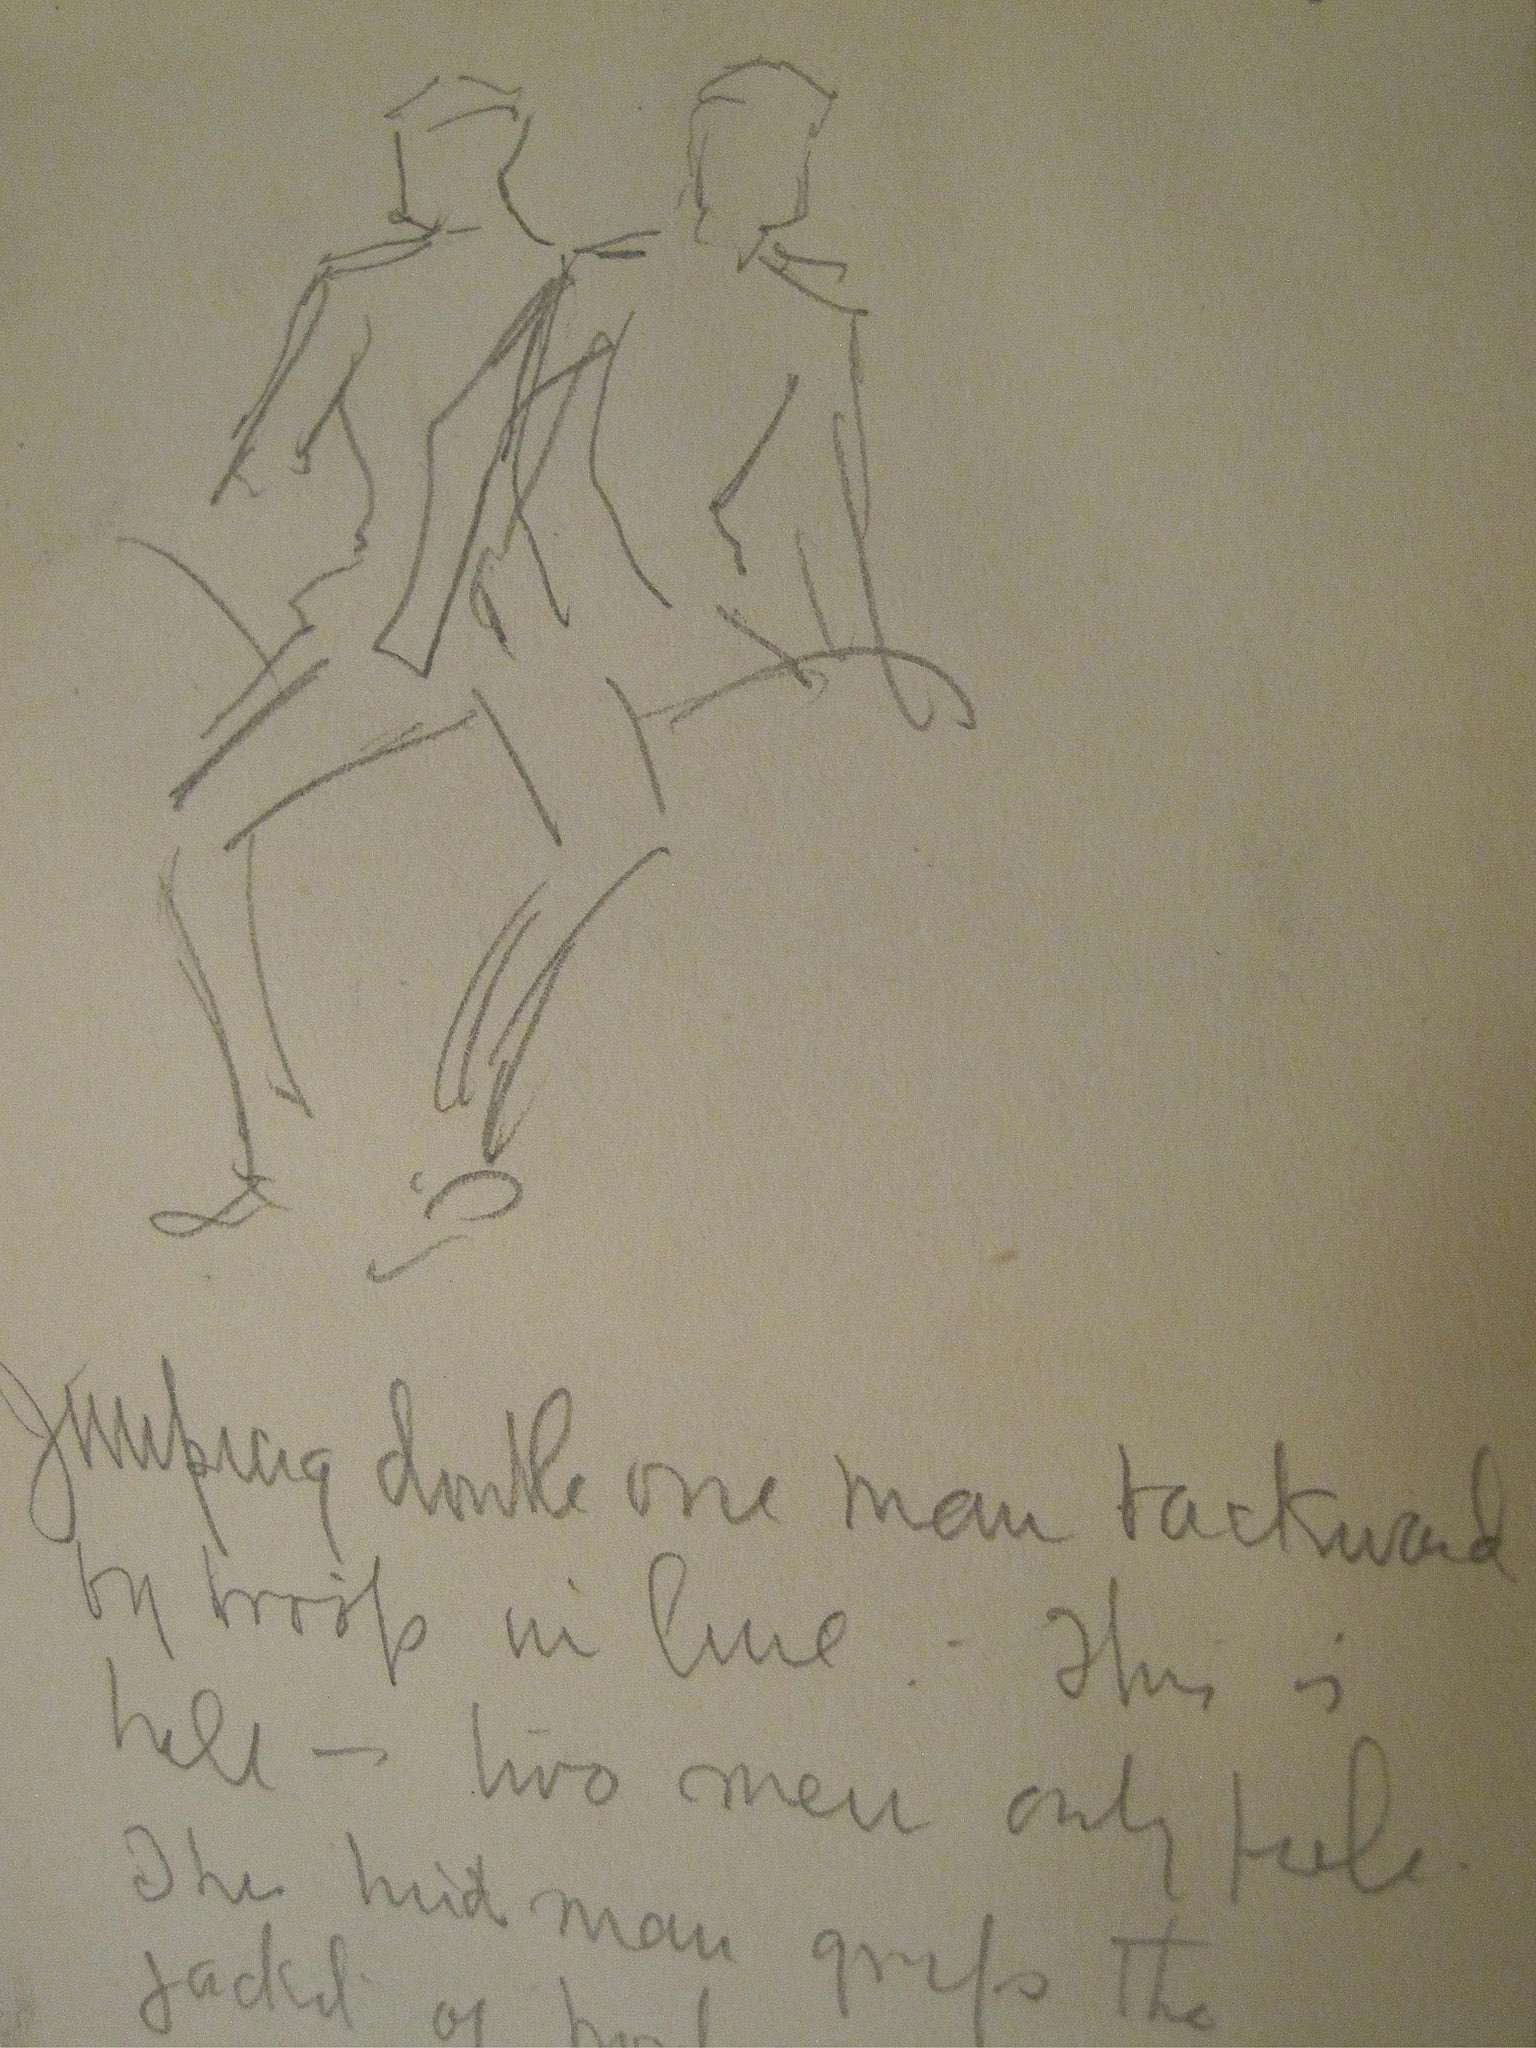 Jumping double one man backward
by troops in line. - This is
hell — two men only
The hind man grips the
jacket of